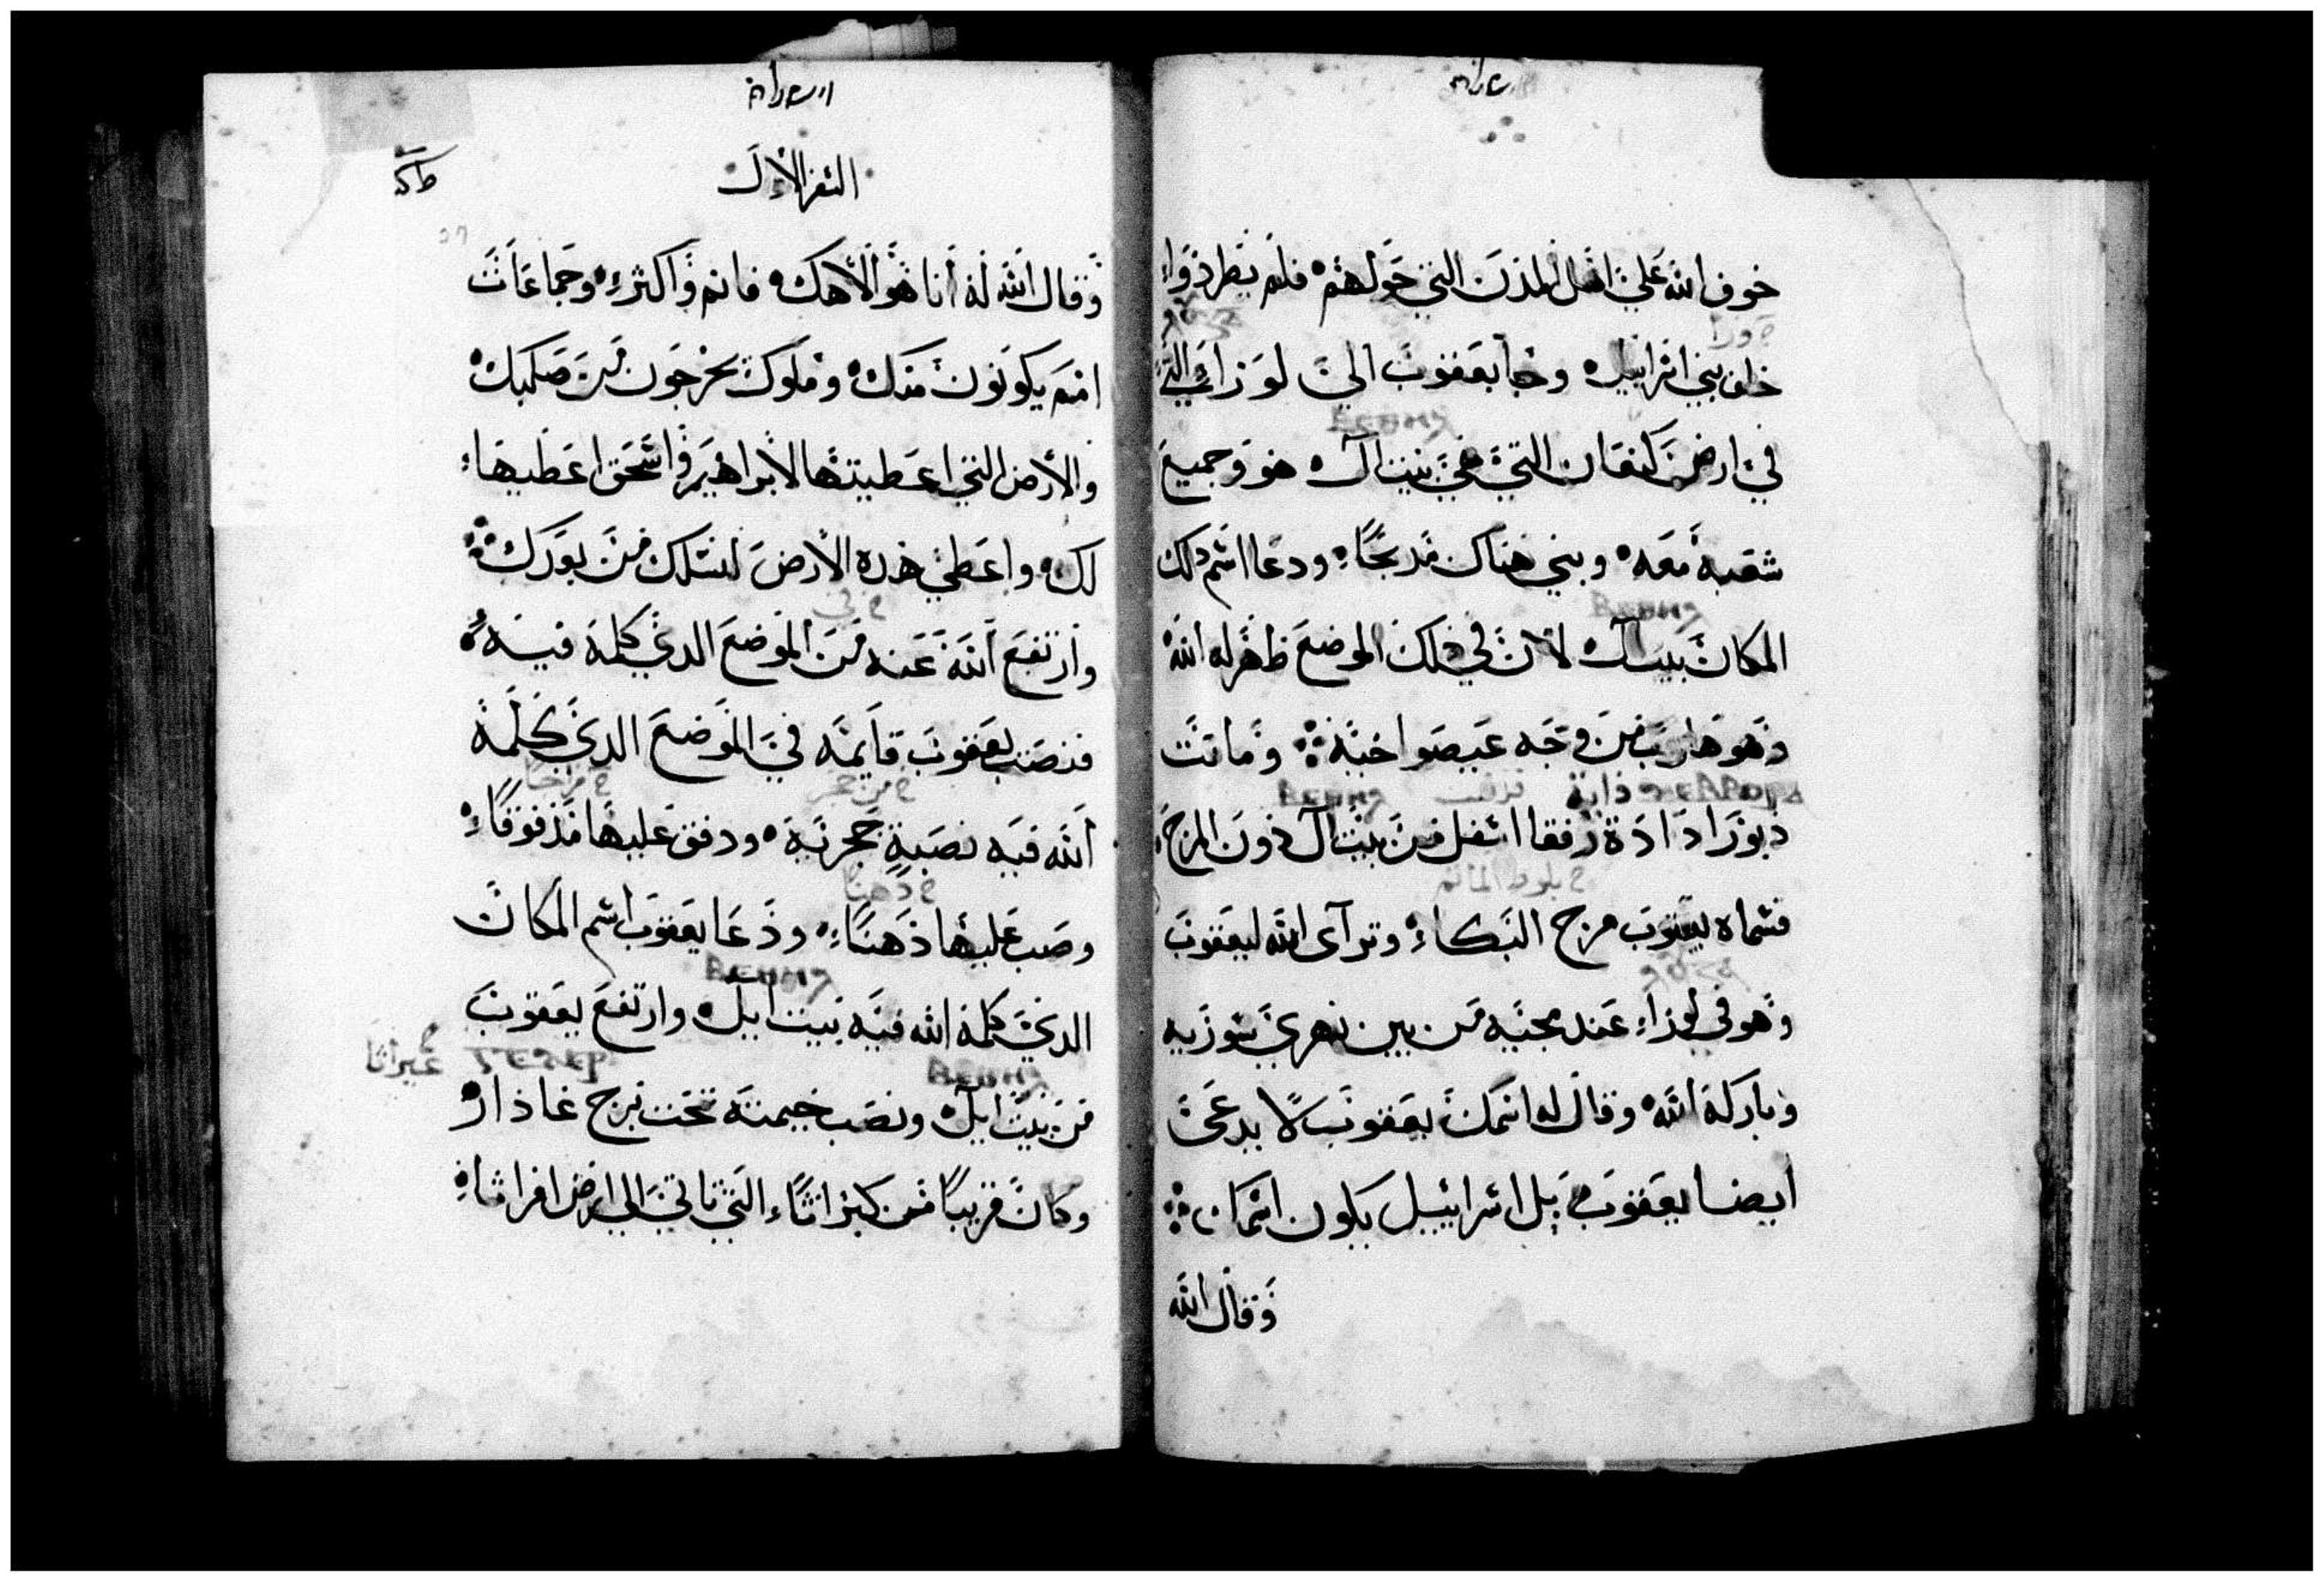 خوف الله علي اهل المدن التي حولهم فلم يطردوا
خلف بني اسرايل وجا يعقوب الي لوزا
في ارض كنعان التي هي بيت ال هو وجميع
شعبه معه وبني هناك مدبحًا ودعا اسم دلك
المكان بيت ال لان في ذلك الموضع ظهر له الله
وهو هارب من وجه عيصو اخيه وماتت
ΒΕΘΗΛ
دبورا دادة رفقا اسفل من بيت ال دون المرج
خ بلوط المأتم
فسماه يعقوب مرج البكاء وترآى الله ليعقوب
وهو في لوزا عند مجيه من بين نهري سوريه
وباركه الله وقال له اسمك يعقوب لا يدعى
ايضا يعقوب بل اسراييل يكون اسمك
وقال الله
السفر الاول
وقال الله له أنا هو الاهك فانم واكثر وجماعات
امم يكونون منك وملوك يخرجون من صلبك
والأرض التي اعطيتها لابراهيم واسحق اعطيها
لك واعطي هده الأرض لنسلك من بعدك
خ في
وارتفع الله عنه من الموضع الدي كلمه فيه
فنصب يعقوب قايمه في الموضع الدي كلمه
خ من حجر
الله فيه نصبة حجرية ودفق عليها مدفوقًا
خ دهنا
وصب عليها دهنًا ودعا يعقوب اسم المكان
ΒΕΘΗΛ
الدي كلمه الله فيه بيت ايل وارتفع يعقوب
ΒΕΘΗΛ
من بيت ايل ونصب خيمته تحت برج غادار
وكان قريبًا من كبراثا التي تاتي الى ارض افراثا